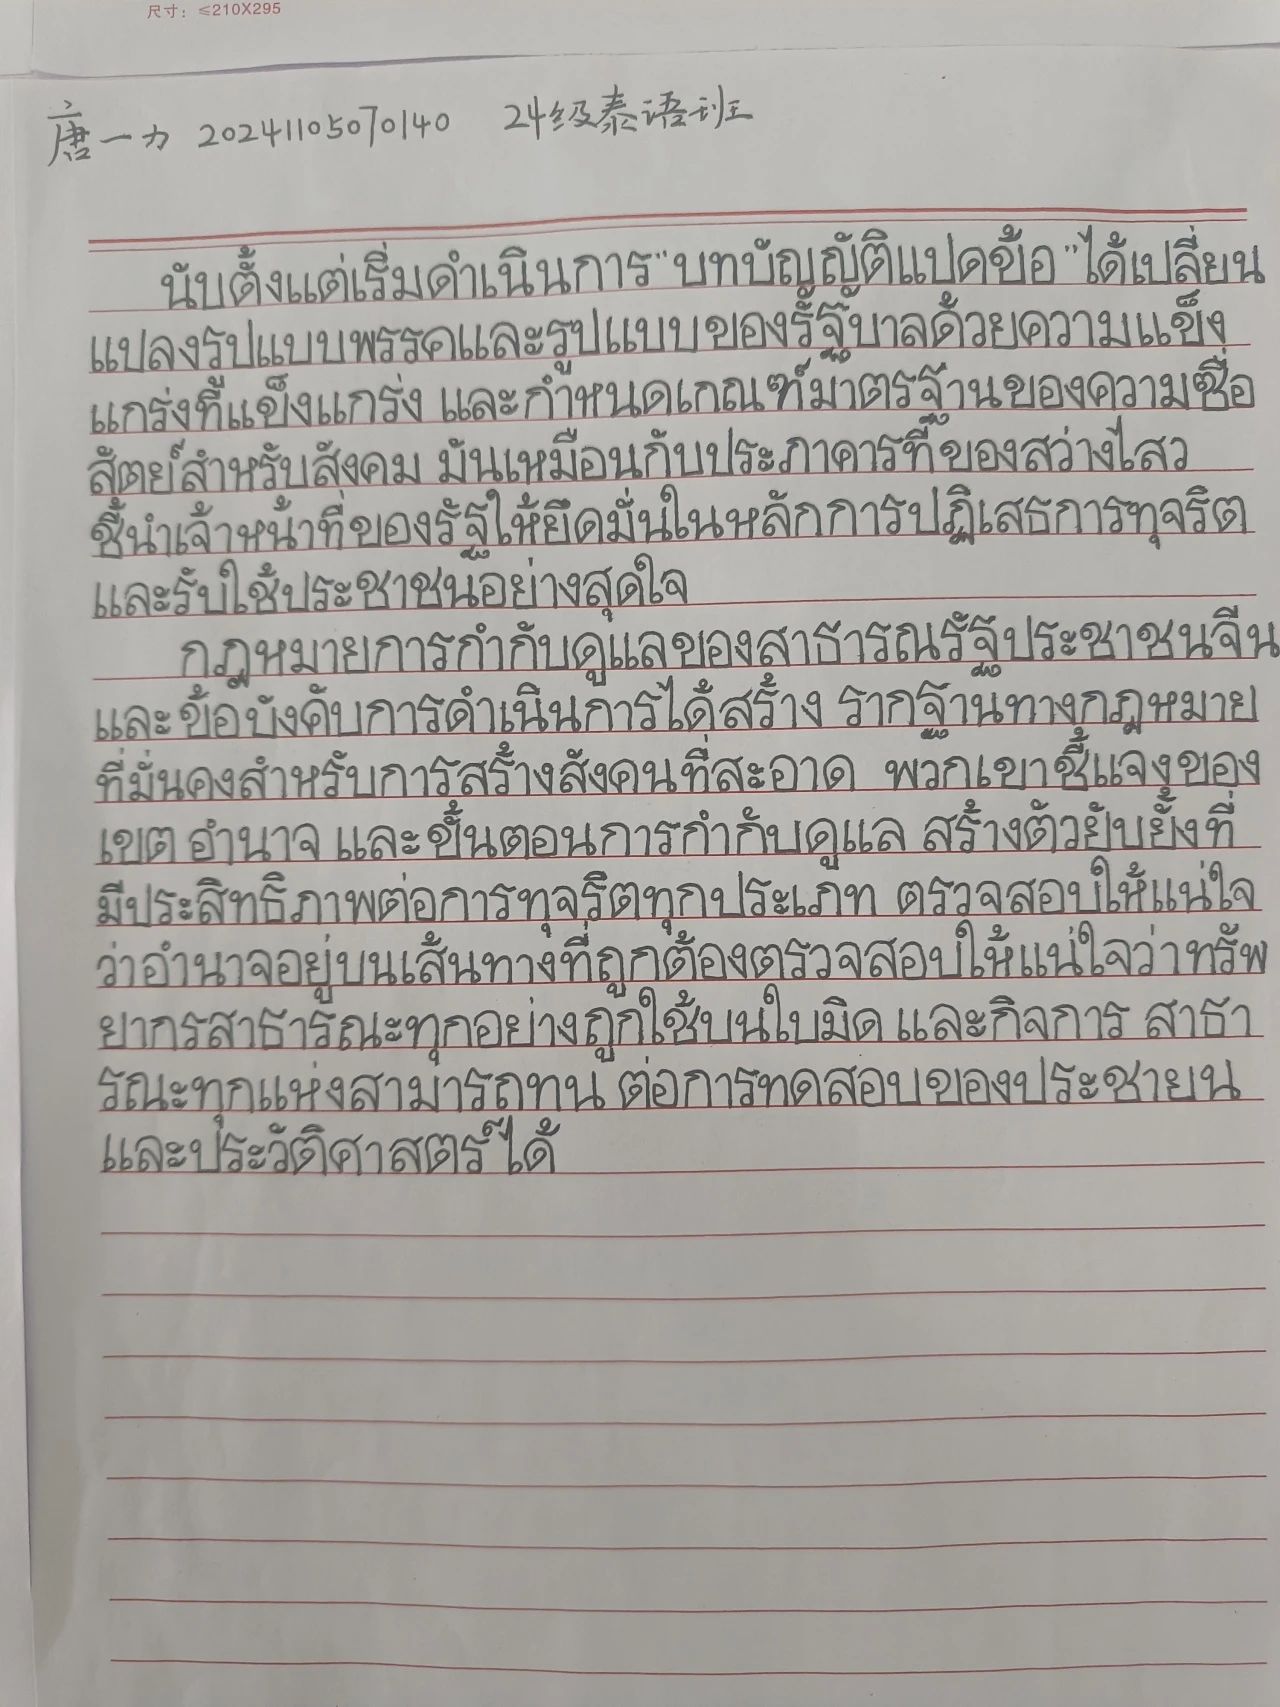 尺寸：≤210X295
唐一力 20241105070140 24级泰语班
นับตั้งแต่เริ่มดำเนินการ"บทบัญญัติแปดข้อ"ได้เปลี่ยน
แปลงรูปแบบพรรคและรูปแบบของรัฐบาลด้วยความแข็ง
แกร่งที่แข็งแกร่ง และกำหนดเกณฑ์มาตรฐานของความซื่อ
สัตย์สำหรับสังคม มันเหมือนกับประภาคารที่ของสว่างไสว
ชี้นำเจ้าหน้าที่ของรัฐให้ยึดมั่นในหลักการปฏิเสธการทุจริต
และรับใช้ประชาชนอย่างสุดใจ
กฎหมายการกำกับดูแลของสาธารณรัฐประชาชนจีน
และข้อบังคับการดำเนินการได้สร้าง รากฐานทางกฎหมาย
ที่มั่นคงสำหรับการสร้างสังคนที่สะอาด พวกเขาชี้แจงของ
เขต อำนาจ และขั้นตอนการกำกับดูแล สร้างตัวยับยั้งที่
มีประสิทธิภาพต่อการทุจริตทุกประเภท ตรวจสอบให้แน่ใจ
ว่าอำนาจอยู่บนเส้นทางที่ถูกต้องตรวจสอบให้แน่ใจว่าทรัพ
ยากรสาธารณะทุกอย่างถูกใช้บนใบมิด และกิจการ สาธา
รณะทุกแห่งสามารถทน ต่อการทดสอบของประชายน
และประวัติศาสตร์ได้